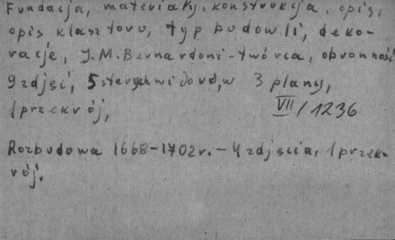 Fundacja, materiały, konstrukcja, opis,
opis klasztoru, typ budowli, deko-
racje, J.M. Bernardoni - twórca, obronność
9 zdjęć, 5 starych widoków, 3 plany,
1 przekrój, VII/1236
Rozbudowa 1668-1702r. - 4 zdjęcia, 1 przek-
rój.